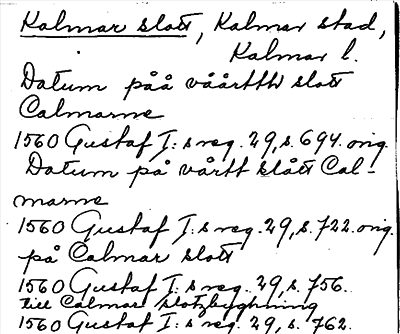 Kalmar slott, Kalmar stad,
Kalmar l.
Datum påå våårttw slott
Calmarne
1560 Gustaf I:s reg. 29, s. 694. orig.
Datum på vårtt slått Cal-
marne
1560 Gustaf I:s reg. 29, s. 722. orig.
på Calmar slott
1560 Gustaf I:s reg. 29, s. 756.
till Calmar slotzbygning
1560 Gustaf I:s reg. 29, s. 762.